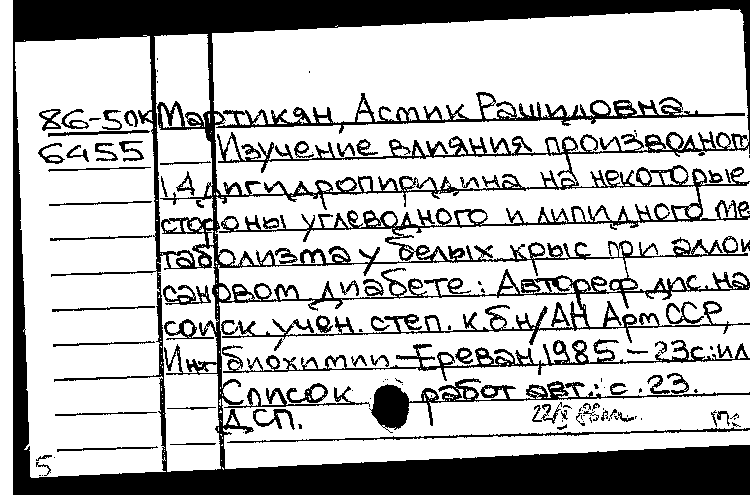 86-5пк Мартикян, Астик Рашидовна.
6455 Изучение влияния производного
1,4 дигидропиридина на некоторые
стороны углеводного и липидного ме
таболизма у белых крыс при аллок
сановом диабете: Автореф. дис. на
соиск. учен. степ. к.б.н/АН Арм ССР,
Ин-т биохимии.-Ереван, 1985.-23с.:ил
Список работ авт.: с. 23.
ДСП.
5